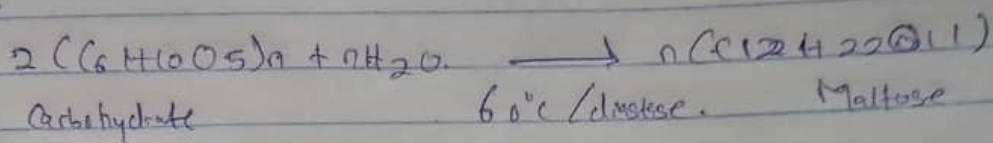 2 (C6H10O5)n + nH2O. ⟶ n(C12H22O11)
Carbohydrate 60°c /diastase. Maltose